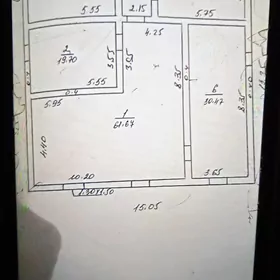 5.55 2.15 5.75
2
19.70
3.55
3.55
4.25
5.55
0.4
5.95
8.35
6
30.47
8.35
0.40
1
61.67
4.40
0.4
10.20
3.65
15.05